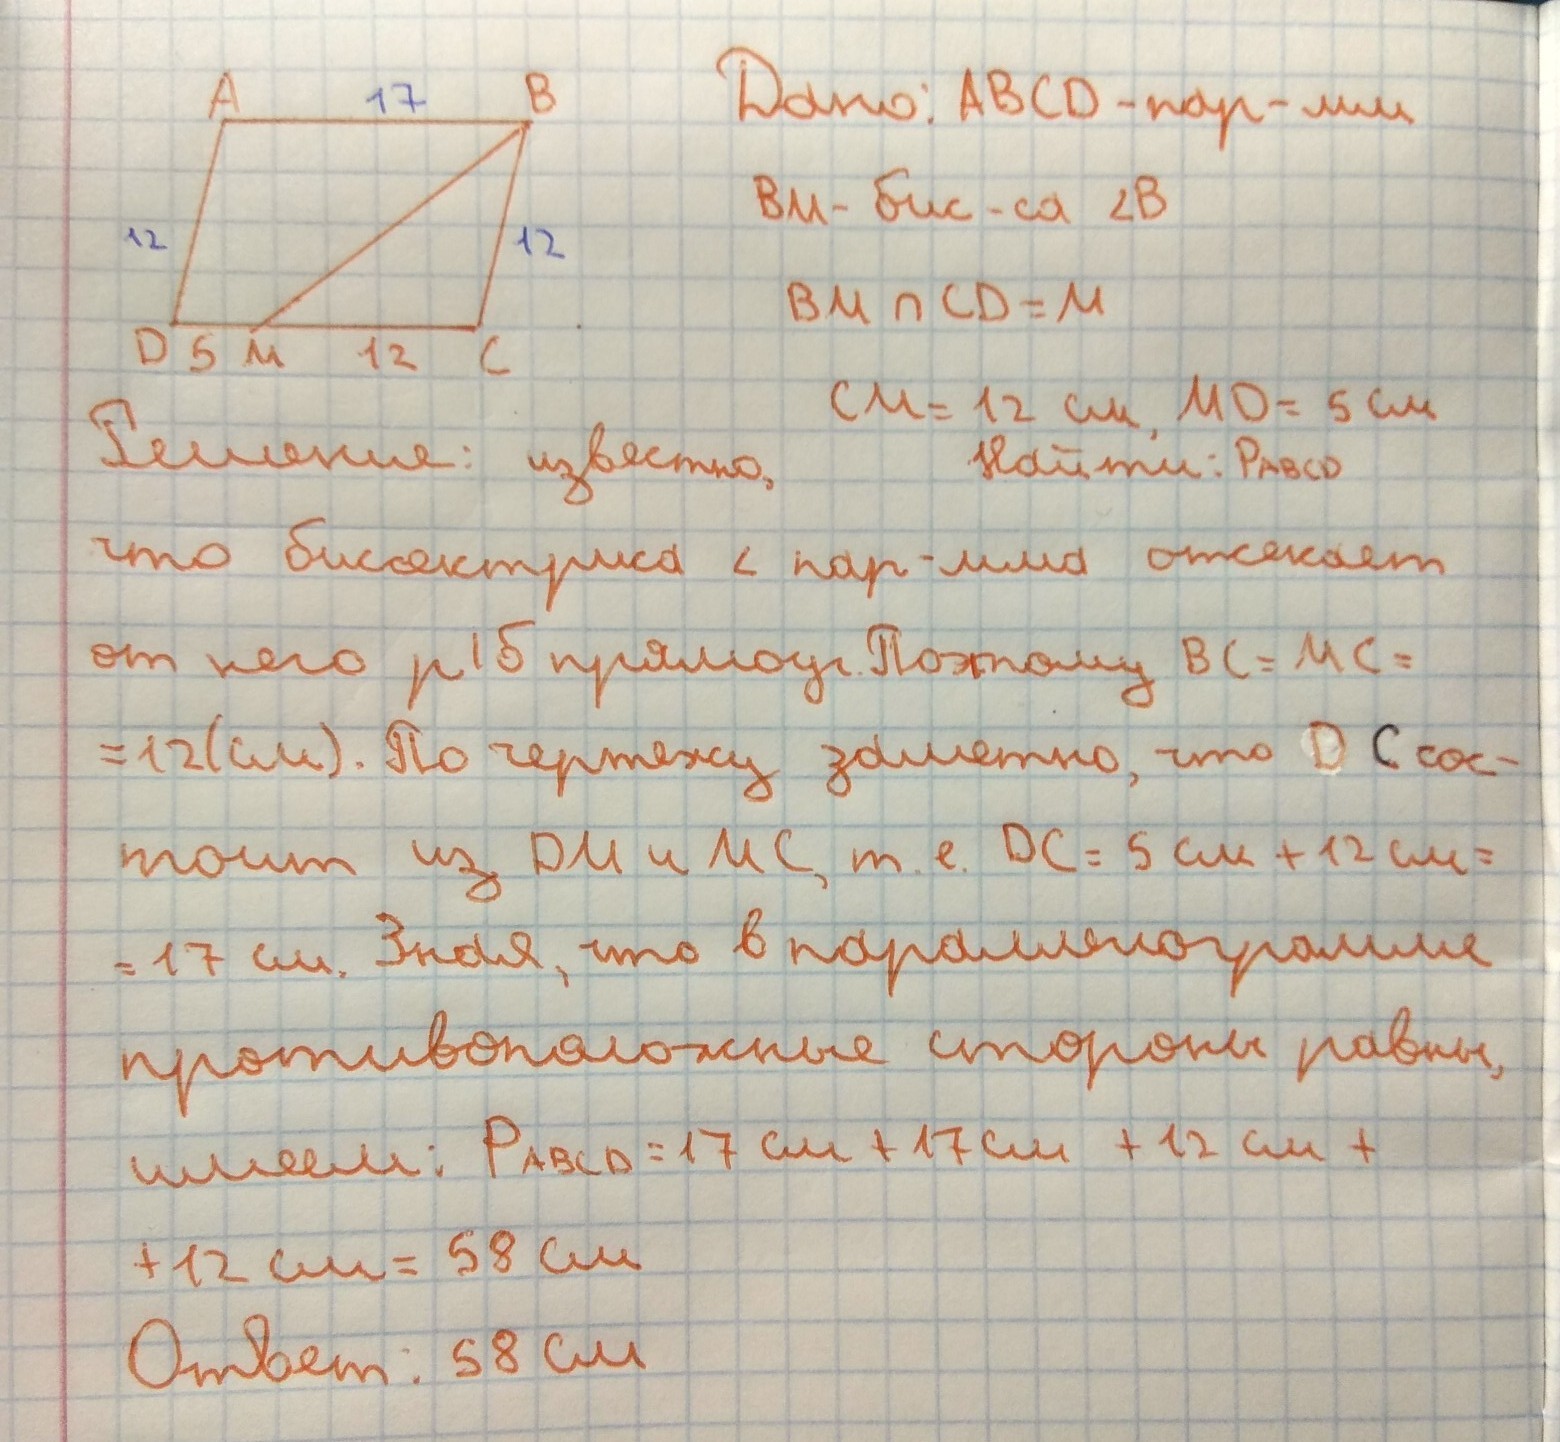 A 17 B
Дано: ABCD - пар-мм
BM - бис-са ∠B
12 12
BM ∩ CD = M
D 5 M 12 C
CM = 12 см, MD = 5 см
Решение: известно,
Найти: PABCD
что биссектриса ∠ пар-мма отсекает
от него р/б прямоуг. Поэтому BC = MC =
= 12(см). По чертежу заметно, что DC сос-
тоит из DM и MC, т. е. DC = 5 см + 12 см =
= 17 см. Зная, что в параллелограмме
противоположные стороны равны,
имеем: PABCD = 17 см + 17 см + 12 см +
+ 12 см = 58 см
Ответ: 58 см